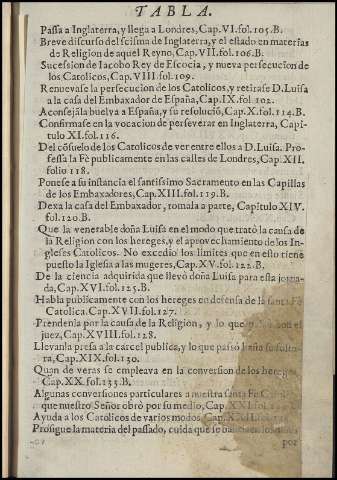 TABLA.
Passa a Inglaterra, y llega a Londres, Cap. VI. fol. 105. B.
Breve discurso del scisma de Inglaterra, y el estado en materias
de Religion de aquel Reyno, Cap. VII. fol. 106. B.
Sucession de Iacobo Rey de Escocia, y nueva persecucion de
los Catolicos, Cap. VIII. fol. 109.
Renuevase la persecucion de los Catolicos, y retirase D. Luisa
a la casa del Embaxador de España, Cap. IX. fol. 102.
Aconsejála buelva a España, y su resoluciõ, Cap. X. fol. 114. B.
Confirmase en la vocacion de perseverar en Inglaterra, Capi-
tulo XI. fol. 116.
Del cõsuelo de los Catolicos de ver entre ellos a D. Luisa. Pro-
fessa la Fè publicamente en las calles de Londres, Cap. XII.
folio 118.
Ponese a su instancia el santissimo Sacramento en las Capillas
de los Embaxadores, Cap. XIII. fol. 119. B.
Dexa la casa del Embaxador, tomala a parte, Capitulo XIV.
fol. 120. B.
Que la venerable doña Luisa en el modo que tratò la causa de
la Religion con los hereges, y el aprovechamiento de los In-
gleses Catolicos. No excediò los limites que en esto tiene
puesto la Iglesia a las mugeres, Cap. XV. fol. 122. B.
De la ciencia adquirida que llevò doña Luisa para esta jorna-
da, Cap. XVI. fol. 125. B.
Habla publicamente con los hereges en defensa de la santa Fè
Catolica. Cap. XVII. fol. 127.
Prendenla por la causa de la Religion, y lo que con el
juez, XVIII. fol. 128.
Llevanla presa a la carcel publica, y lo que passò hasta su soltu-
ra, Cap. XIX. fol. 130.
Quan de veras se empleava en la conversion de los hereges,
Cap. XX. fol. 133. B.
Algunas conversiones particulares a nuestra santa Fè
que nuestro Señor obrò por su medio, Cap. XXI.
Ayuda a los Catolicos de varios modos, Cap.
Prosigue la materia del passado, cuida que se
por